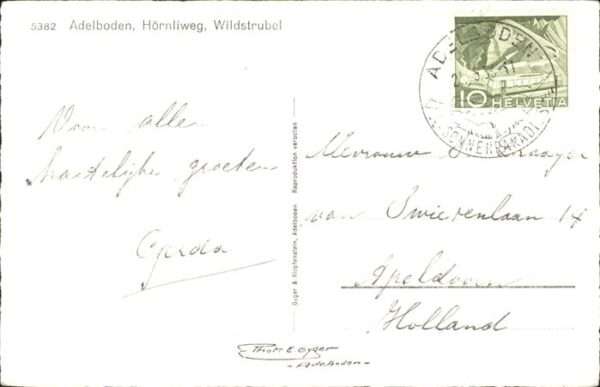 5382 Adelboden, Hörnliweg, Wildstrubel
Voor allen
hartelijke groeten
Gerda
Gyger & Klopfenstein, Adelboden Reproduktion verboten
10 HELVETIA
ADELBODEN
SONNEN
Mevrouw
van Swietenlaan 14
Apeldoorn
Holland
Phot. E. Gyger
Adelboden